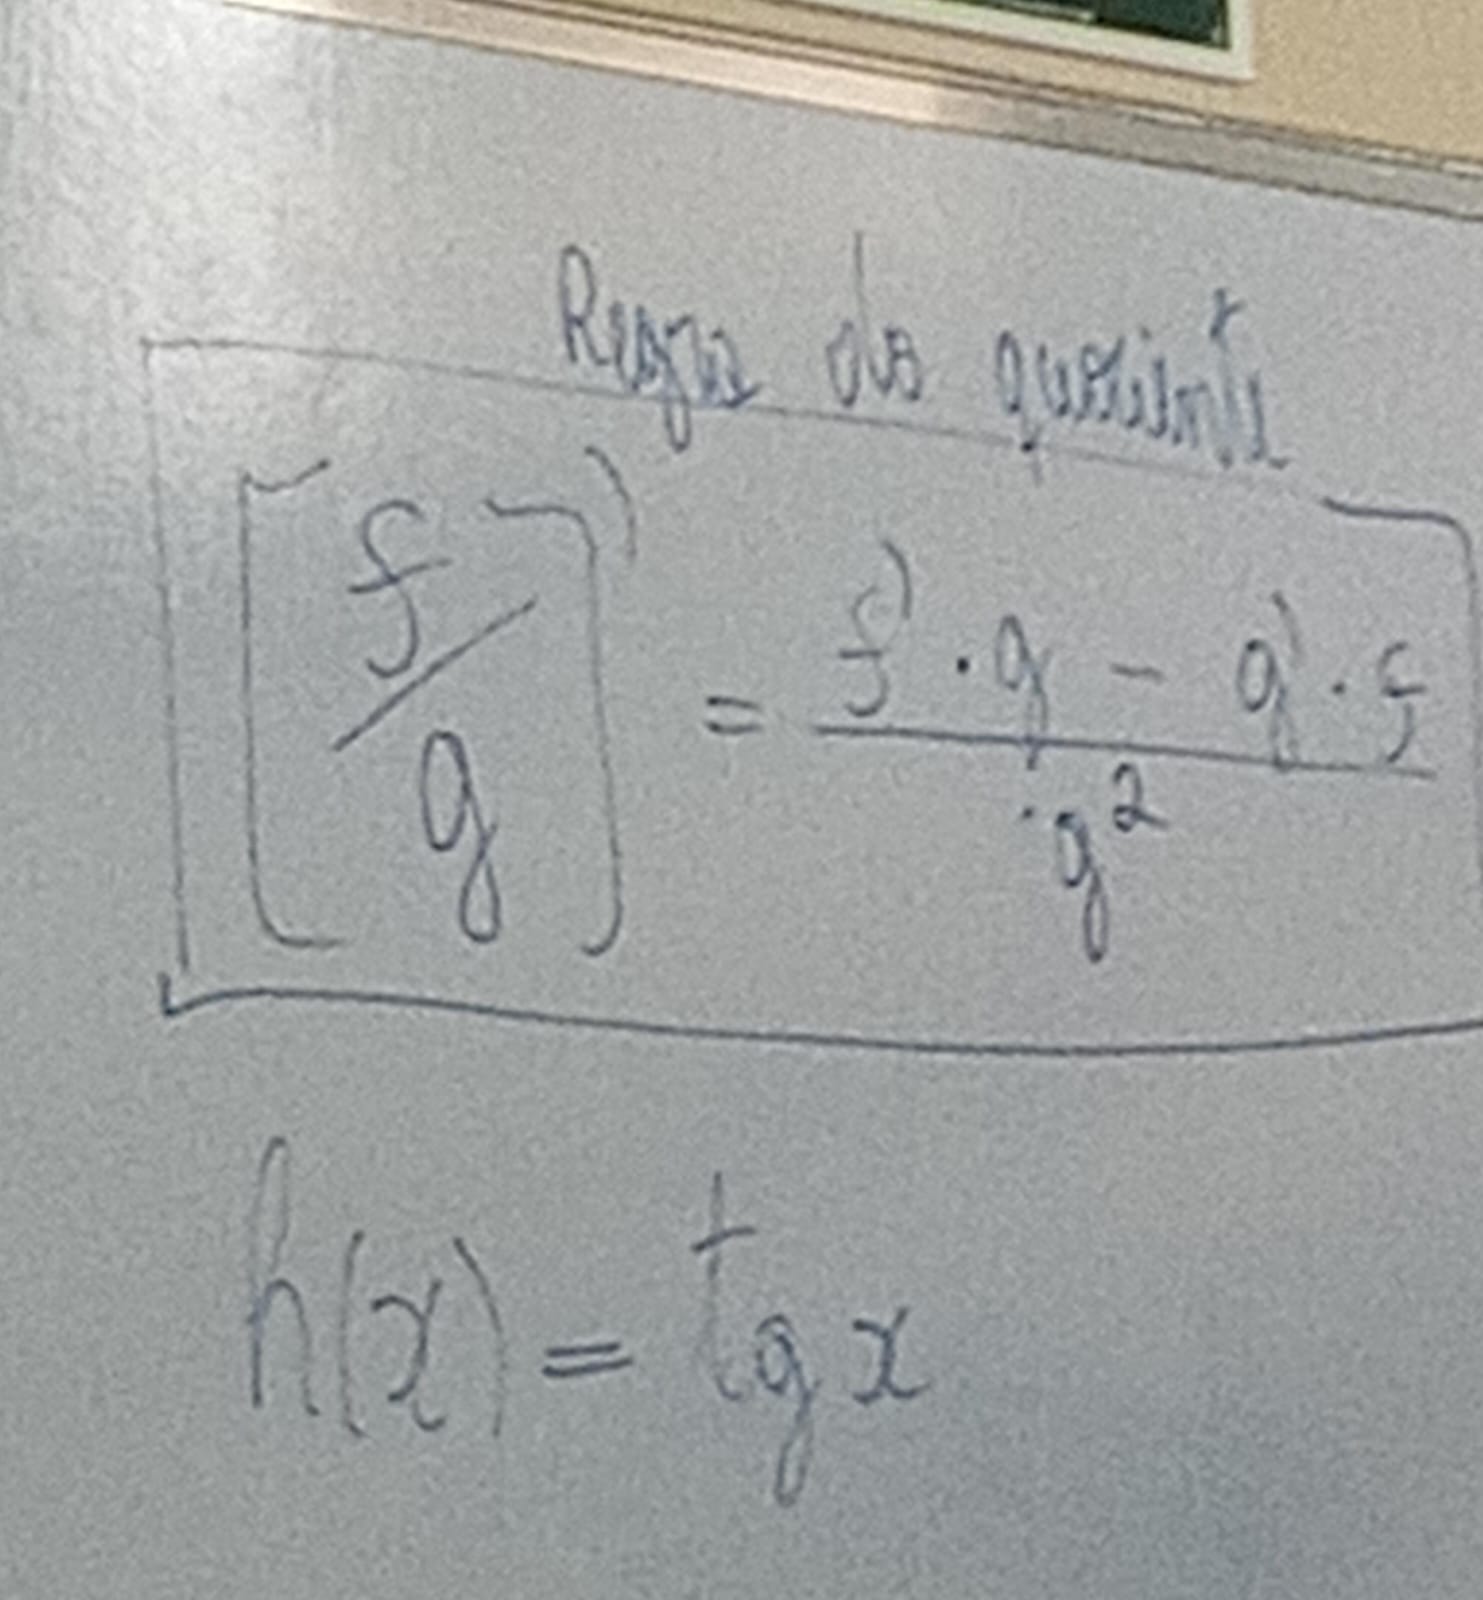 Regra do quociente
[f/g]' = f' · g - g' · f / g²
h(x) = tg x